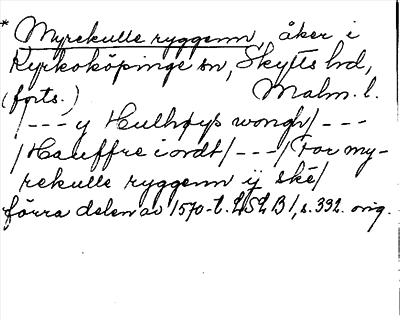 * Myrekulle ryggenn, åker i
Kyrkoköpinge sn, Skytts hd,
(forts.) Malm. l.
/--- y Hulhøys wongh/ ---
/Hauffre iordt/ ---/ For my-
rekulle ryggenn ij ske/
förra delen av 1570-t. LSLB 1, s. 392. orig.